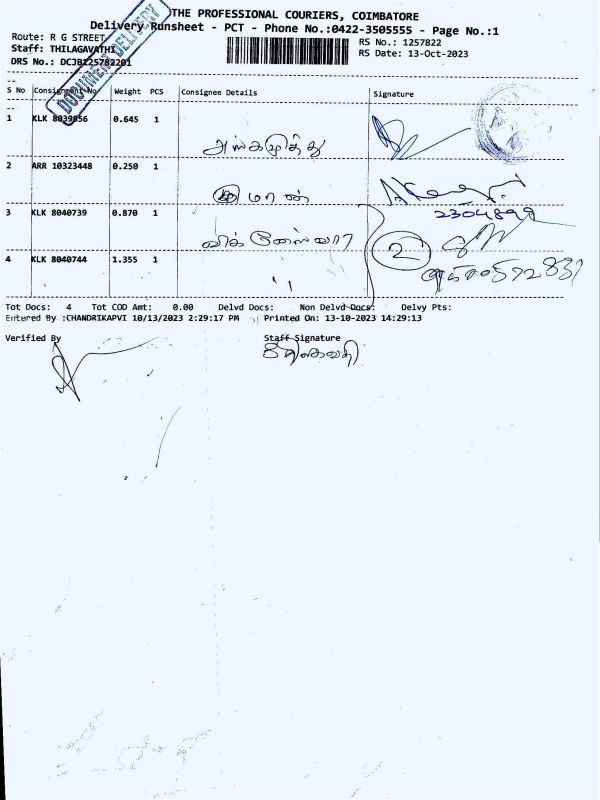 THE PROFESSIONAL COURIERS, COIMBATORE
Delivery Runsheet - PCT - Phone No.:0422-3505555 - Page No.:1
Route: R G STREET
RS No.: 1257822
Staff: THILAGAVATHI
RS Date: 13-Oct-2023
DRS No.: DCJB125782201
DOCUMENT DELIVERY
S No Consignment No Weight PCS Consignee Details Signature
1 KLK 8039856 0.645 1
2 ARR 10323448 0.250 1 மாண்
2304898
3 KLK 8040739 0.870 1
2
4 KLK 8040744 1.355 1
Tot Docs: 4 Tot COD Amt: 0.00 Delvd Docs: Non Delvd Docs: Delvy Pts:
Entered By :CHANDRIKAPVI 10/13/2023 2:29:17 PM Printed On: 13-10-2023 14:29:13
Verified By Staff Signature